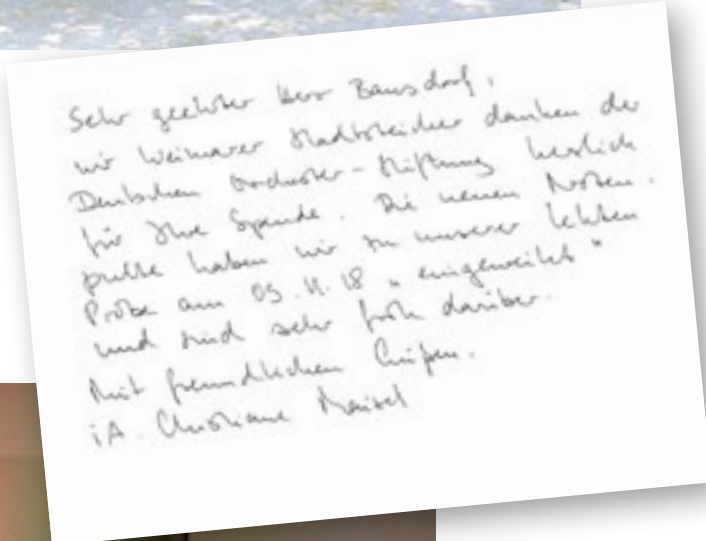 Sehr geehrter Herr Bausdorf,
wir Weimarer Stadtstreicher danken der
Deutschen Orchester-Stiftung herzlich
für Ihre Spende. Die neuen Noten-
pulte haben wir zu unserer letzten
Probe am 05.11.18 "eingeweiht"
und sind sehr froh darüber.
Mit freundlichen Grüßen.
iA. Christiane